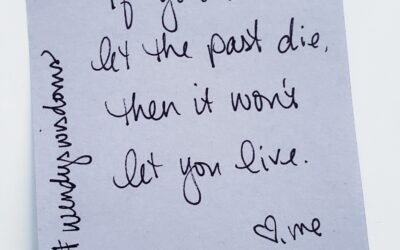 let the past die,
then it won't
let you live.
♡, me
#wendyswisdoms